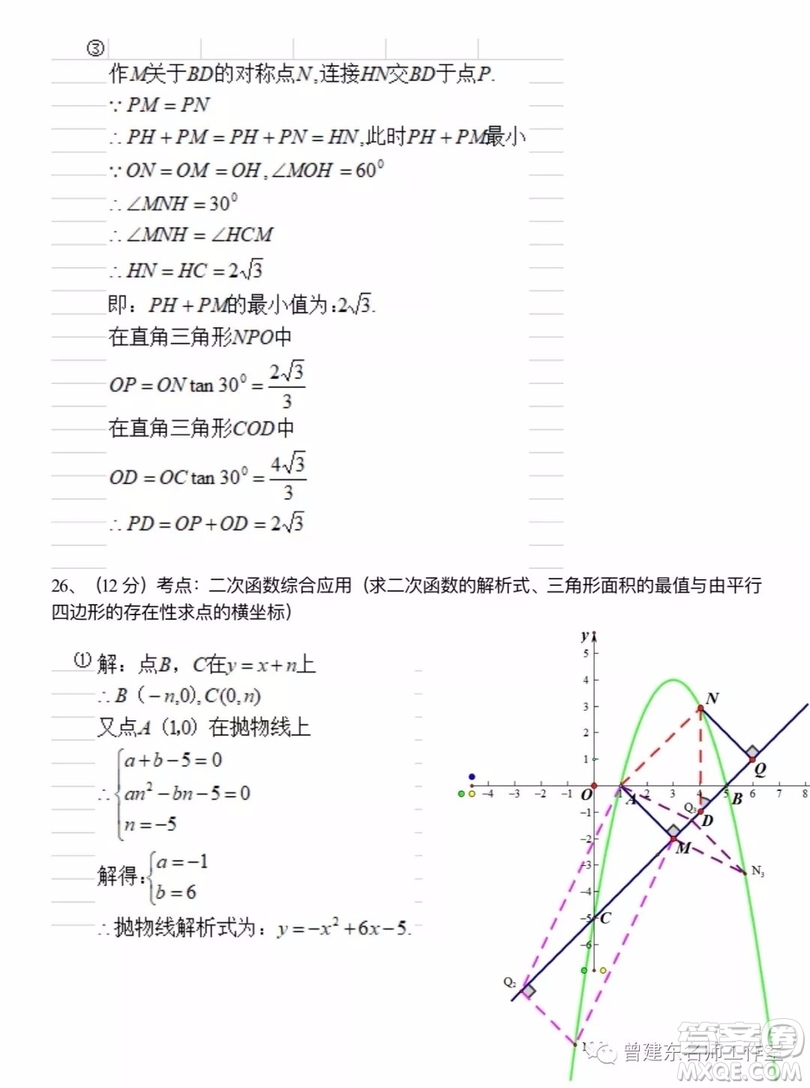 ③
作M关于BD的对称点N,连接HN交BD于点P.
∵PM=PN
∴PH+PM=PH+PN=HN,此时PH+PM最小
∵ON=OM=OH,∠MOH=60⁰
∴∠MNH=30⁰
∴∠MNH=∠HCM
∴HN=HC=2√3
即：PH+PM的最小值为：2√3.
在直角三角形NPO中
OP=ON tan 30⁰=2√3/3
在直角三角形COD中
OD=OC tan 30⁰=4√3/3
∴PD=OP+OD=2√3
26、（12 分）考点：二次函数综合应用（求二次函数的解析式、三角形面积的最值与由平行
四边形的存在性求点的横坐标）
① 解：点B，C在y=x+n上
∴B（-n,0),C(0,n)
又点A（1,0）在抛物线上
∴{a+b-5=0
an²-bn-5=0
n=-5
解得：{a=-1
b=6
∴抛物线解析式为：y=-x²+6x-5.
y
5
4
3
2
1
N
Q
-4 -3 -2 -1 O 1 A 2 3 4 5 B 6 7 8
-1
-2
-3
-4
-5
-6
Q₃
D
M
N₃
C
Q₂
曾建东名师工作室
答案圈
MXQE.COM